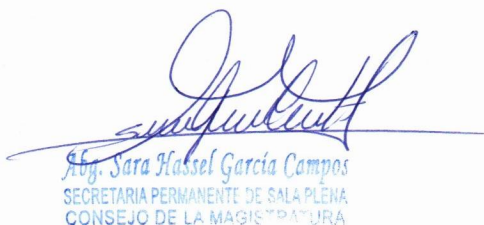 Abg. Sara Hassel García Campos
SECRETARIA PERMANENTE DE SALA PLENA
CONSEJO DE LA MAGISTRATURA